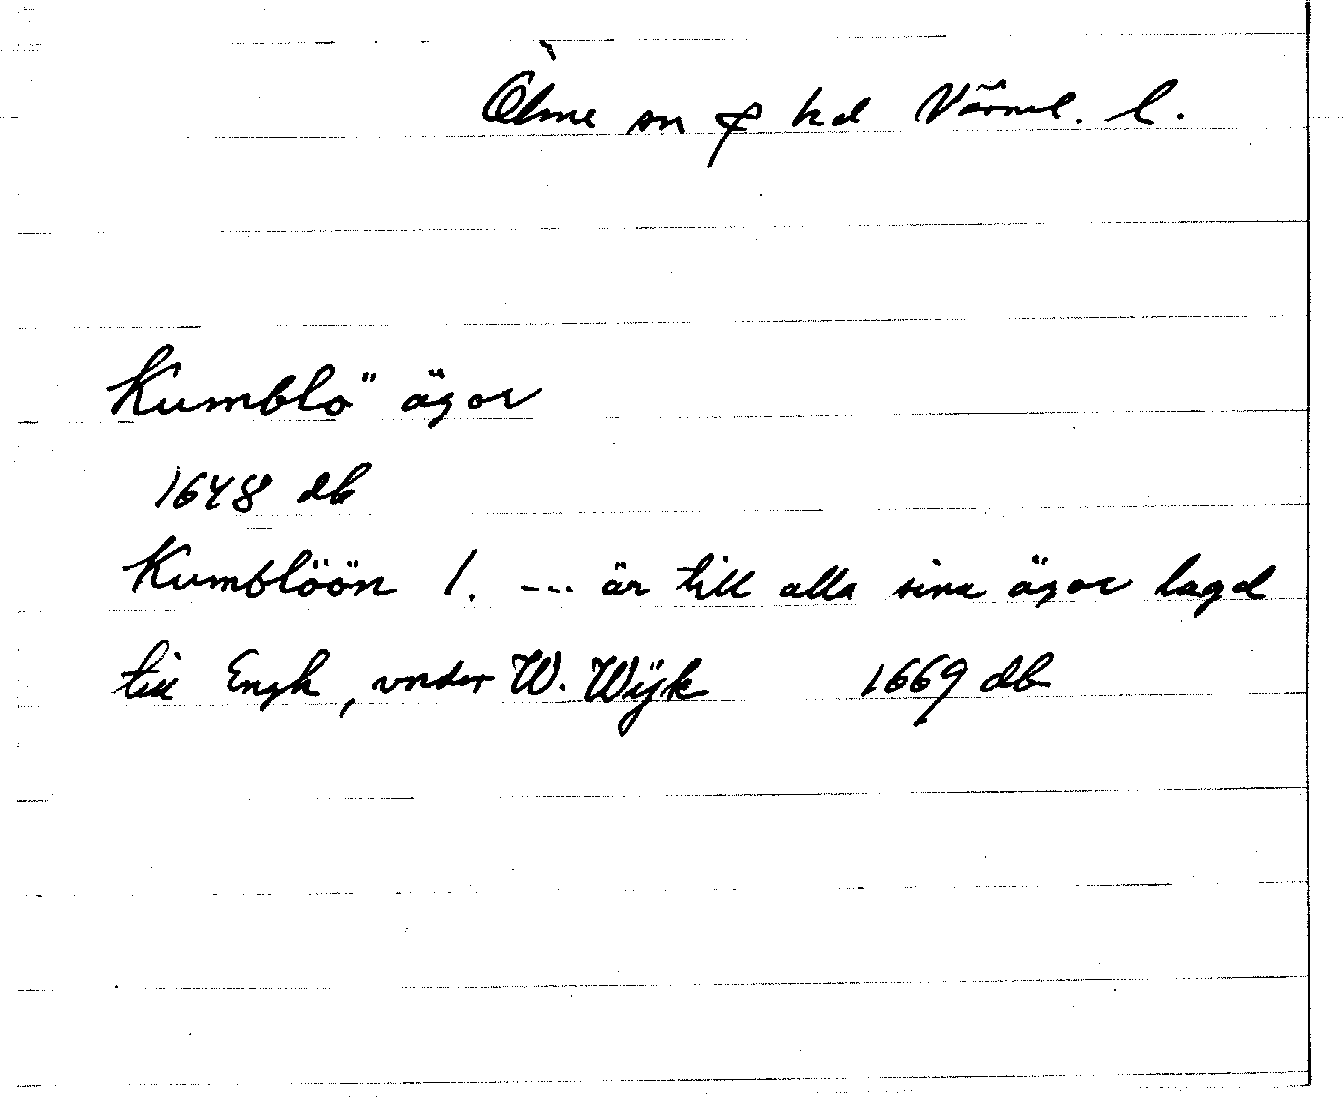 Ölme sn o hd Värml. l.
Kumblö ägor
1648 db
Kumblöön 1. --- är till alla sina ägor lagd
till Engh, vnder W. Wijk 1669 db